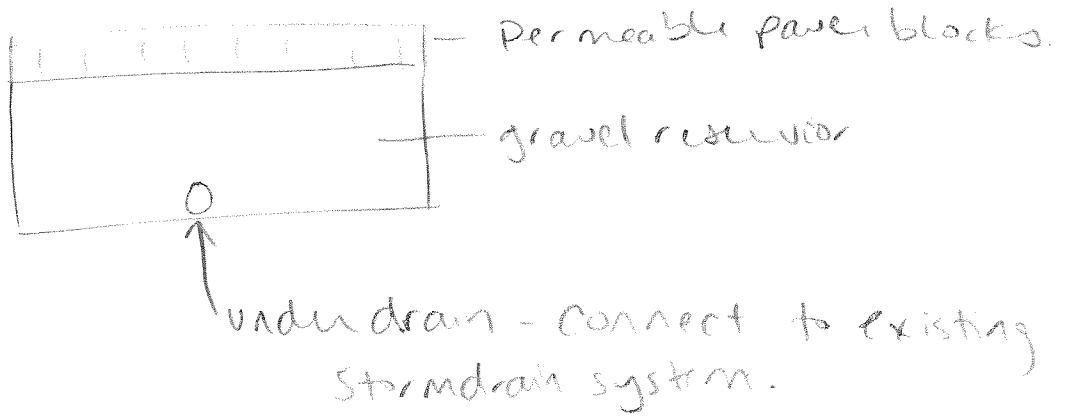 Permeable paver blocks.
gravel reservior
underdrain - connect to existing
stormdrain system.